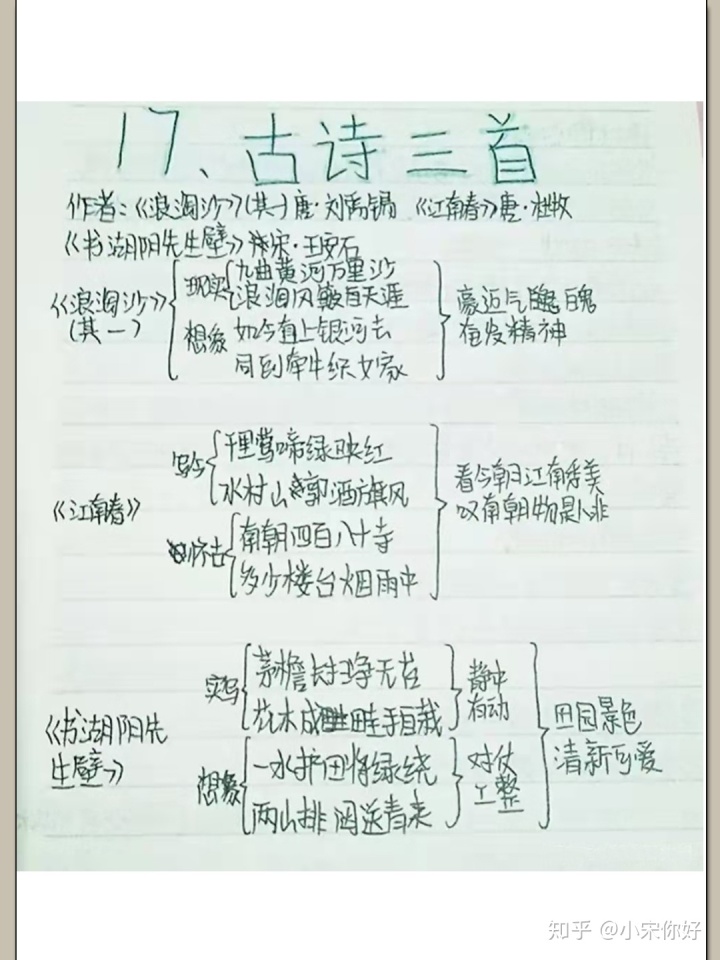 17、古诗三首
作者：《浪淘沙》(其一)唐·刘禹锡 《江南春》唐·杜牧
《书湖阳先生壁》宋·王安石
《浪淘沙》(其一)
现实
九曲黄河万里沙
浪淘风簸自天涯
想象
如今直上银河去
同到牵牛织女家
豪迈气魄
奋发精神
《江南春》
写今
千里莺啼绿映红
水村山郭酒旗风
怀古
南朝四百八十寺
多少楼台烟雨中
看今朝江南秀美
叹南朝物是人非
《书湖阳先生壁》
实写
茅檐长扫净无苔
花木成畦手自栽
静中有动
想象
一水护田将绿绕
两山排闼送青来
对仗工整
田园景色
清新可爱
知乎 @小宋你好